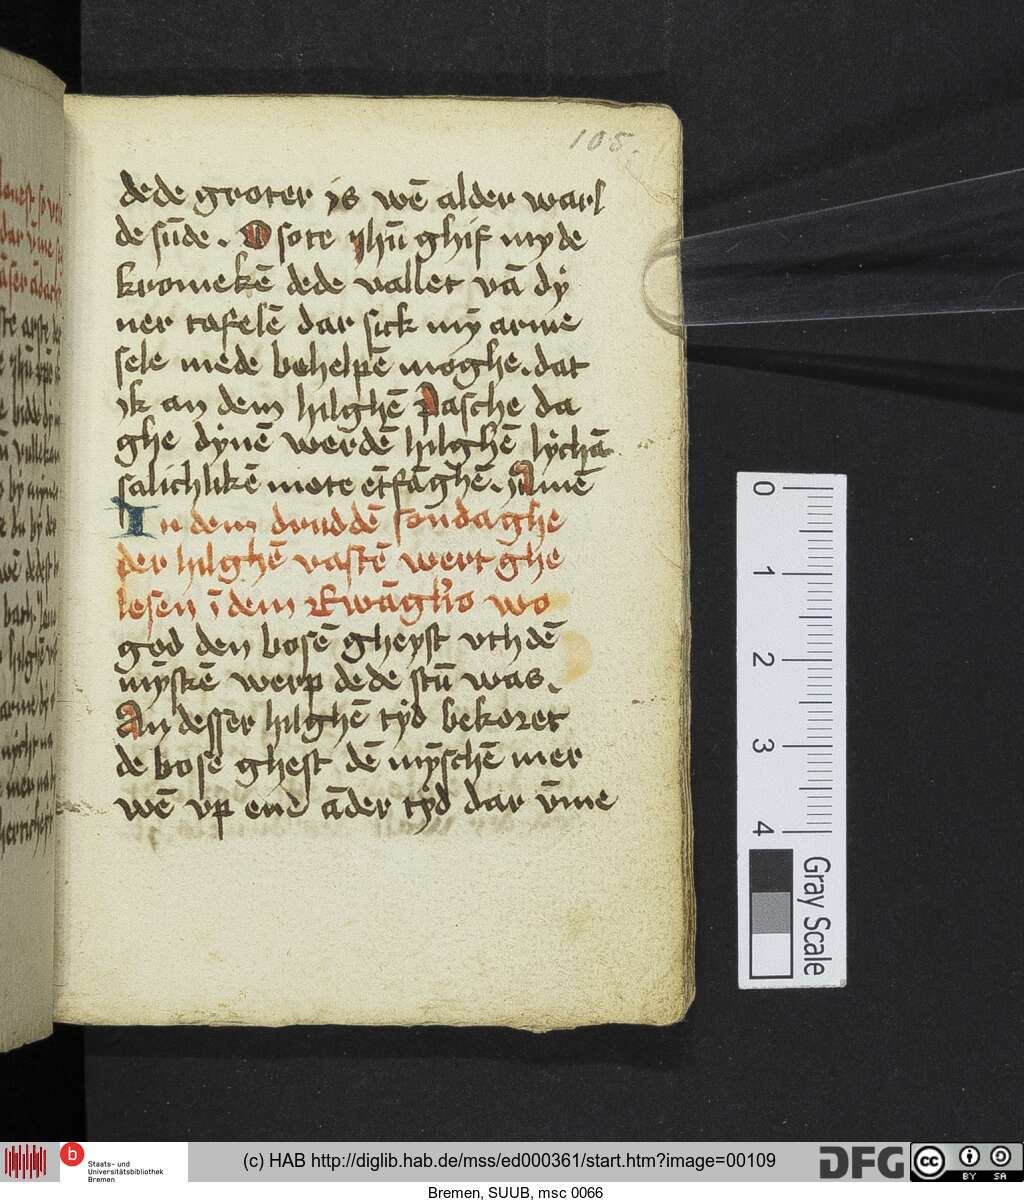 105
dede groter is wē alder warl
de sūde. O sote ihū ghif my de
kromekē dede vallet vā dy
ner tafelē dar sick mȳ arme
sele mede behelpē moghe. dat
ik an dem hilghē Pasche da
ghe dynē werdē hilghē lychā
salichlikē mote ētfāghē. Amē
In dem druddē sondaghe
der hilghē vastē wert ghe
lesen ī dem Ewāgl'io wo
god den bosē gheyst vth dē
mȳskē werp dede stū was.
An desser hilghē tyd bekoret
de bose ghest dē mȳschē mer
wē vp ene āder tyd dar vme
0
1
2
3
4
Gray Scale
b
Staats- und
Universitätsbibliothek
Bremen
(c) HAB http://diglib.hab.de/mss/ed000361/start.htm?image=00109
DFG
cc
BY SA
Bremen, SUUB, msc 0066